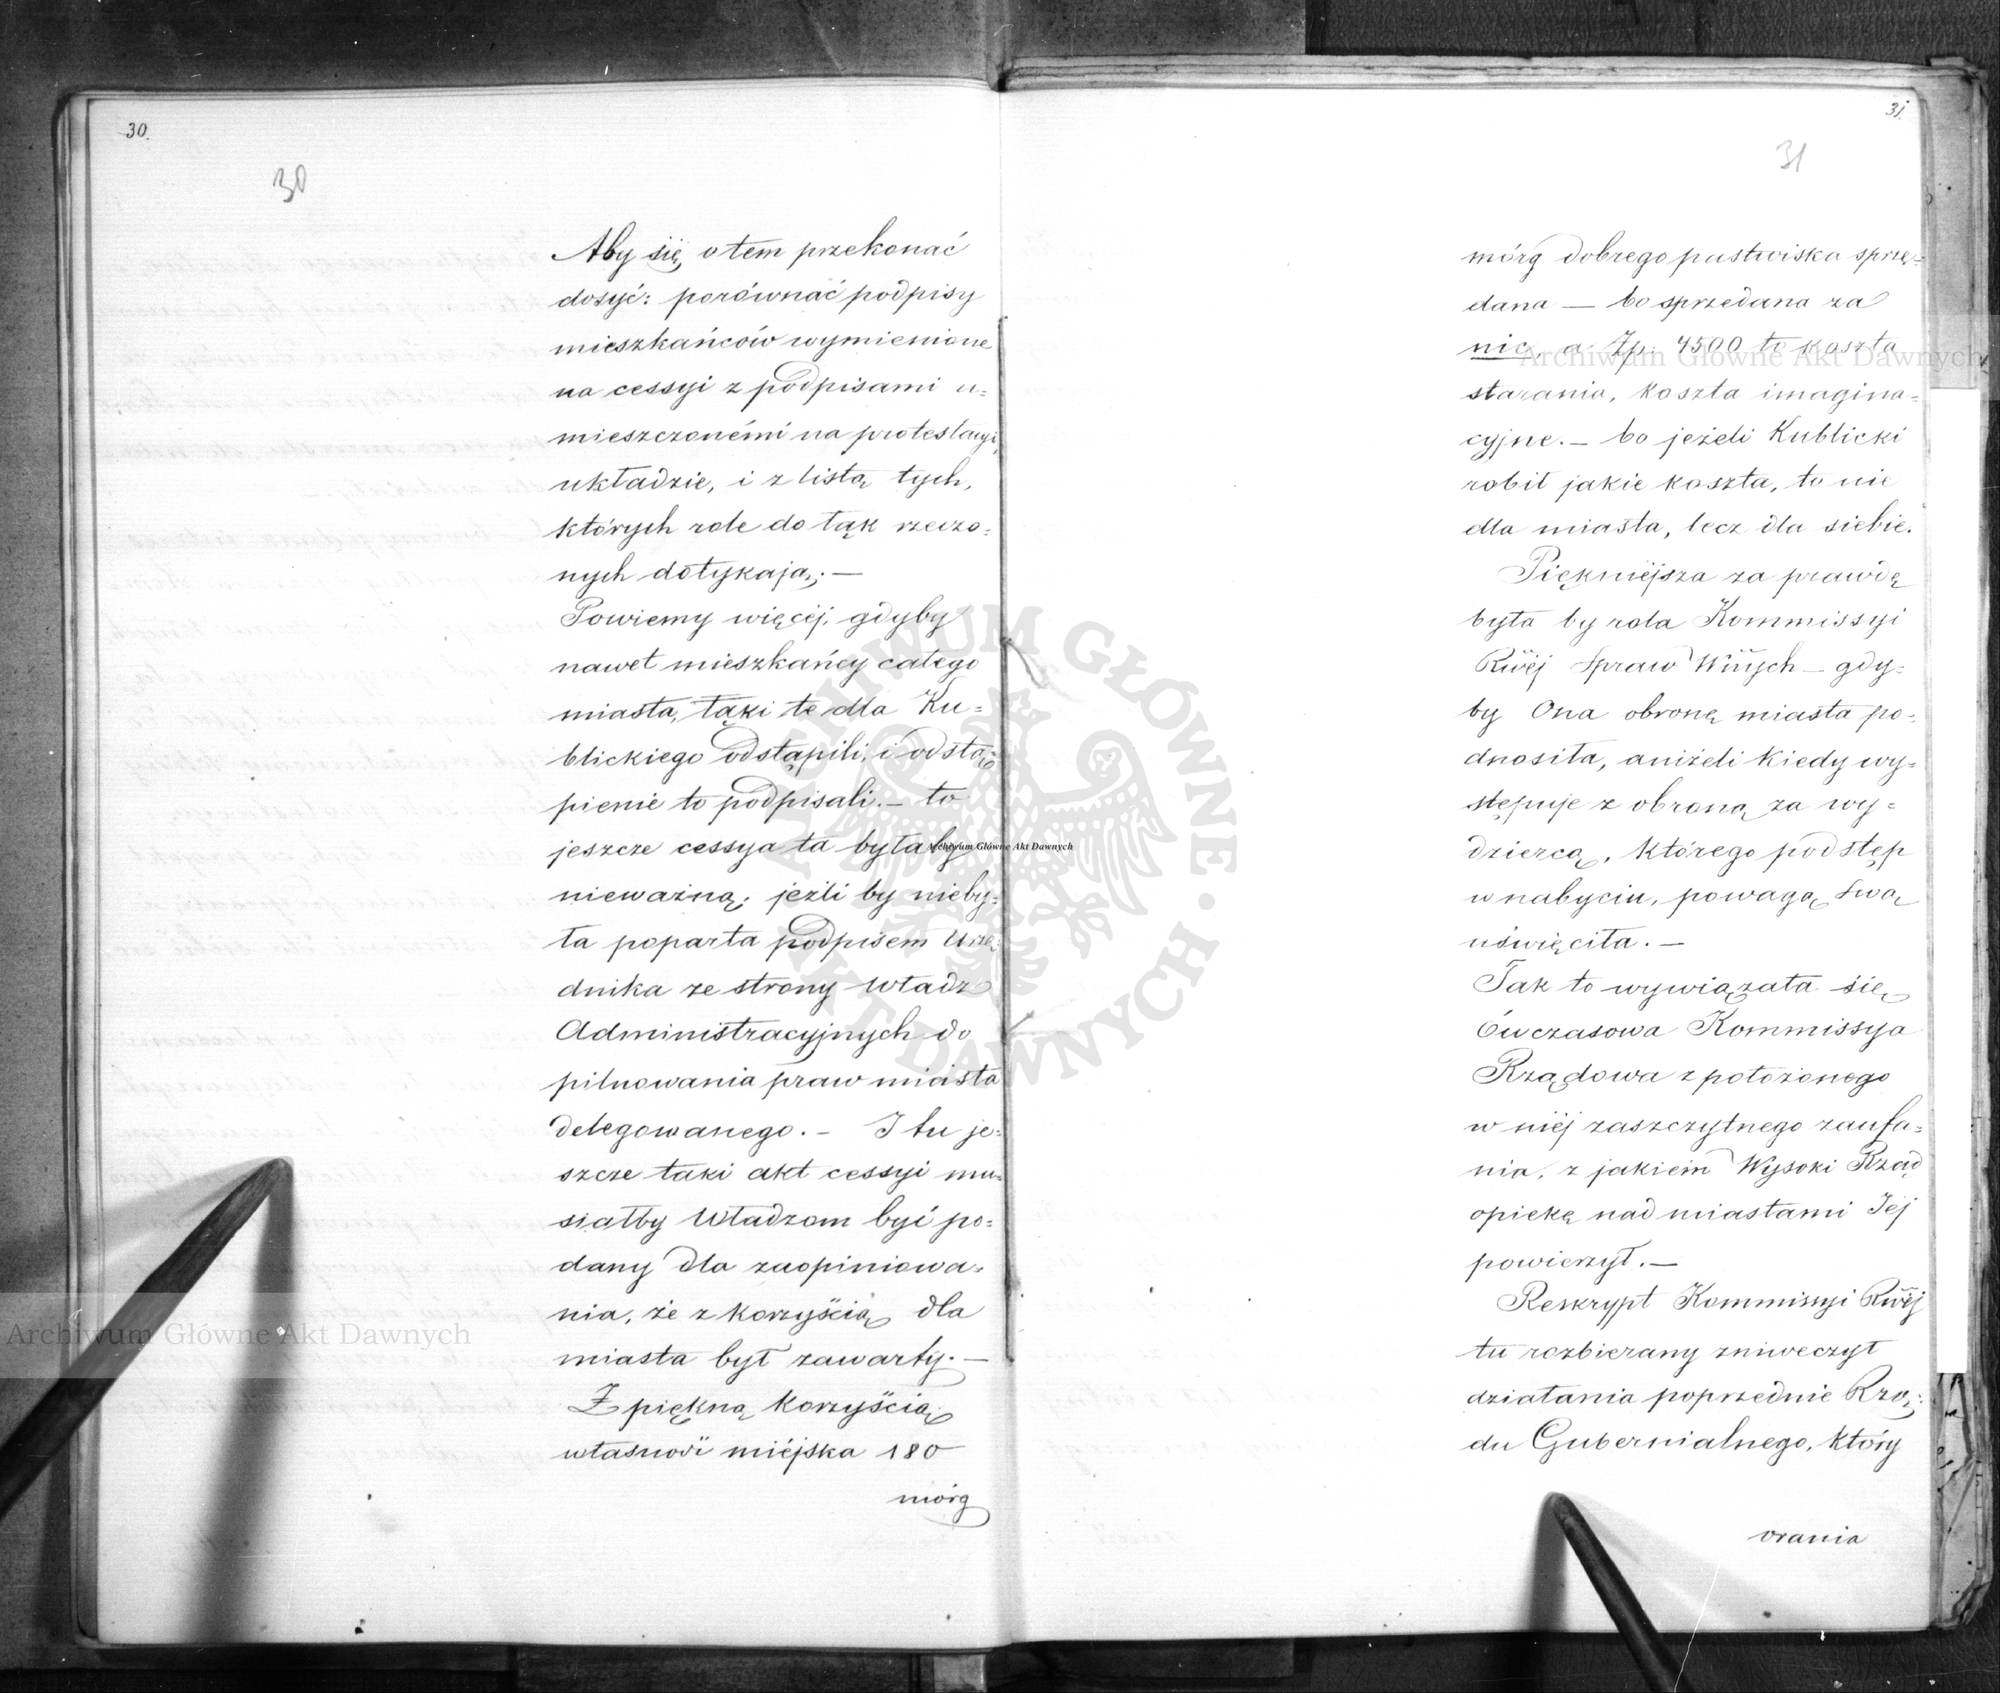 30.
30
Aby się o tem przekonać
dosyć: porównać podpisy
mieszkańców wymienione
na cessyi z podpisami u=
mieszczonémi na protestacyi,
układzie, i z listą tych,
których role do łąk rzeczo=
nych dotykają. —
Powiemy więcéj, gdyby
nawet mieszkańcy całego
miasta, łąki te dla Ku=
blickiego odstąpili, i odstą=
pienie to podpisali. — to
jeszcze cessya ta byłaby
nieważną; jeżli by nieby=
ła poparta podpisem Urzę=
dnika ze strony Władz
Administracyjnych do
pilnowania praw miasta
delegowanego. — I tu je=
szcze taki akt cessyi mu=
siałby Władzom być po=
dany dla zaopiniowa=
nia, że z korzyścią dla
miasta był zawarty. —
Z piękną korzyścią
własność miéjska 180
mórg
31.
31
mórg dobrego pastwiska sprze=
dana — bo sprzedana za
nic, a Zp. 4500 to koszta
starania, koszta imagina=
cyjne. — bo jeżeli Kublicki
robił jakie koszta, to nie
dla miasta, lecz dla siebie.
Piękniéjsza za prawdę
była by rola Kommissyi
Rwéj Spraw Wnych — gdy=
by Ona obronę miasta po=
dnosiła, aniżeli kiedy wy=
stępuje z obroną za wy=
dziercą, którego podstęp
w nabyciu, powagą swą
uświęciła. —
Tak to wywiązała się
ówczasowa Kommissya
Rządowa z położonego
w niéj zaszczytnego zaufa=
nia, z jakiem Wysoki Rząd
opiekę nad miastami Jej
powierzył. —
Reskrypt Kommissyi Rwéj
tu rozbierany zniweczył
działania poprzednie Rzą=
du Gubernialnego, który
orania
Archiwum Główne Akt Dawnych
Archiwum Główne Akt Dawnych
Archiwum Główne Akt Dawnych
ARCHIWUM GŁÓWNE AKT DAWNYCH